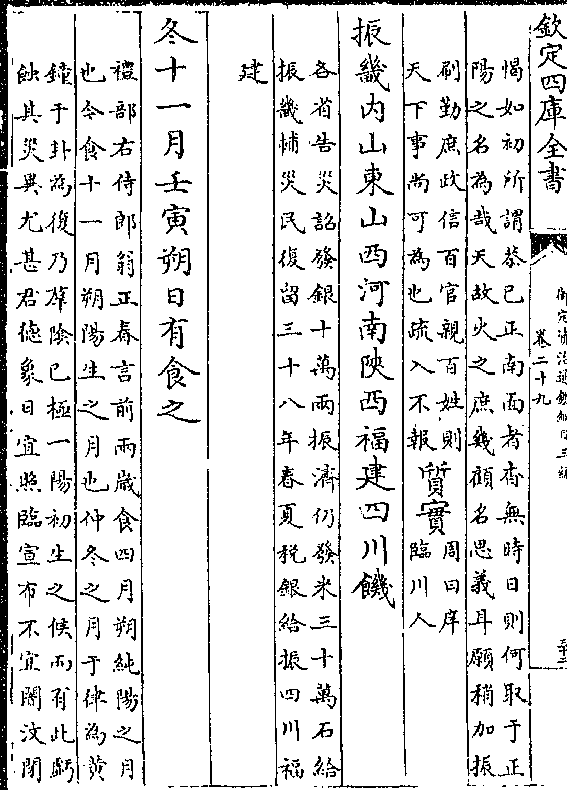 欽定四庫全書
御定資治通鑑綱目三編
卷二十九
愒如初所謂恭已正南面者杳無時日則何取于正
陽之名為哉天故火之庶幾顧名思義耳願稍加振
刷勤庶政信百官親百姓則
天下事尚可為也疏入不報
質實
周曰庠
臨川人
振畿内山東山西河南陝西福建四川饑
各省告災詔發銀十萬兩振濟仍發米三十萬石給
振畿輔災民復留三十八年春夏稅銀給振四川福
建
冬十一月壬寅朔日有食之
禮部右侍郎翁正春言前兩歲食四月朔純陽之月
也今食十一月朔陽生之月也仲冬之月于律為黄
鐘于卦為復乃羣陰已極一陽初生之候而有此虧
蝕其災異尤甚君德象日宜照臨宣布不宜闇汶閉